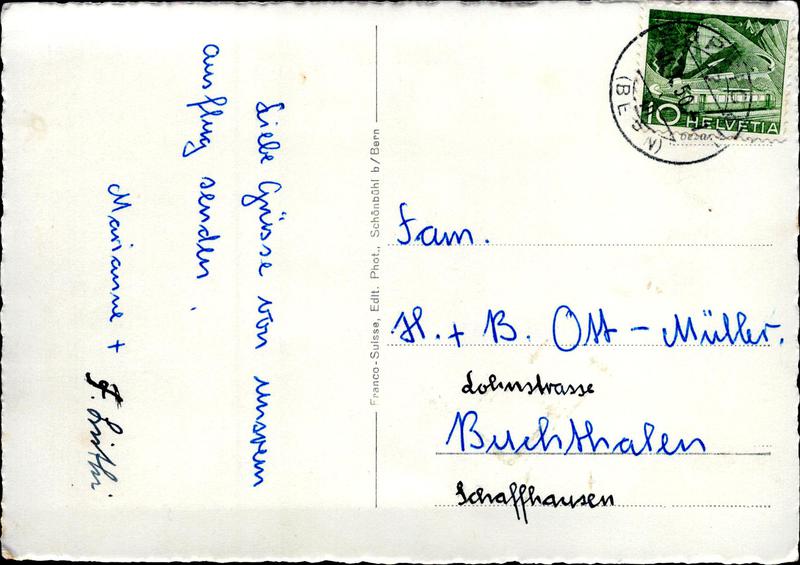 Liebe Grüsse von unserem
ausflug senden.
Marianne + F. Lüthi
Franco-Suisse, Edit. Phot., Schönbühl b/Bern
50
(BERN)
10 HELVETIA
Fam.
H. + B. Ott - Müller.
Lohnstrasse
Buchthalen
Schaffhausen